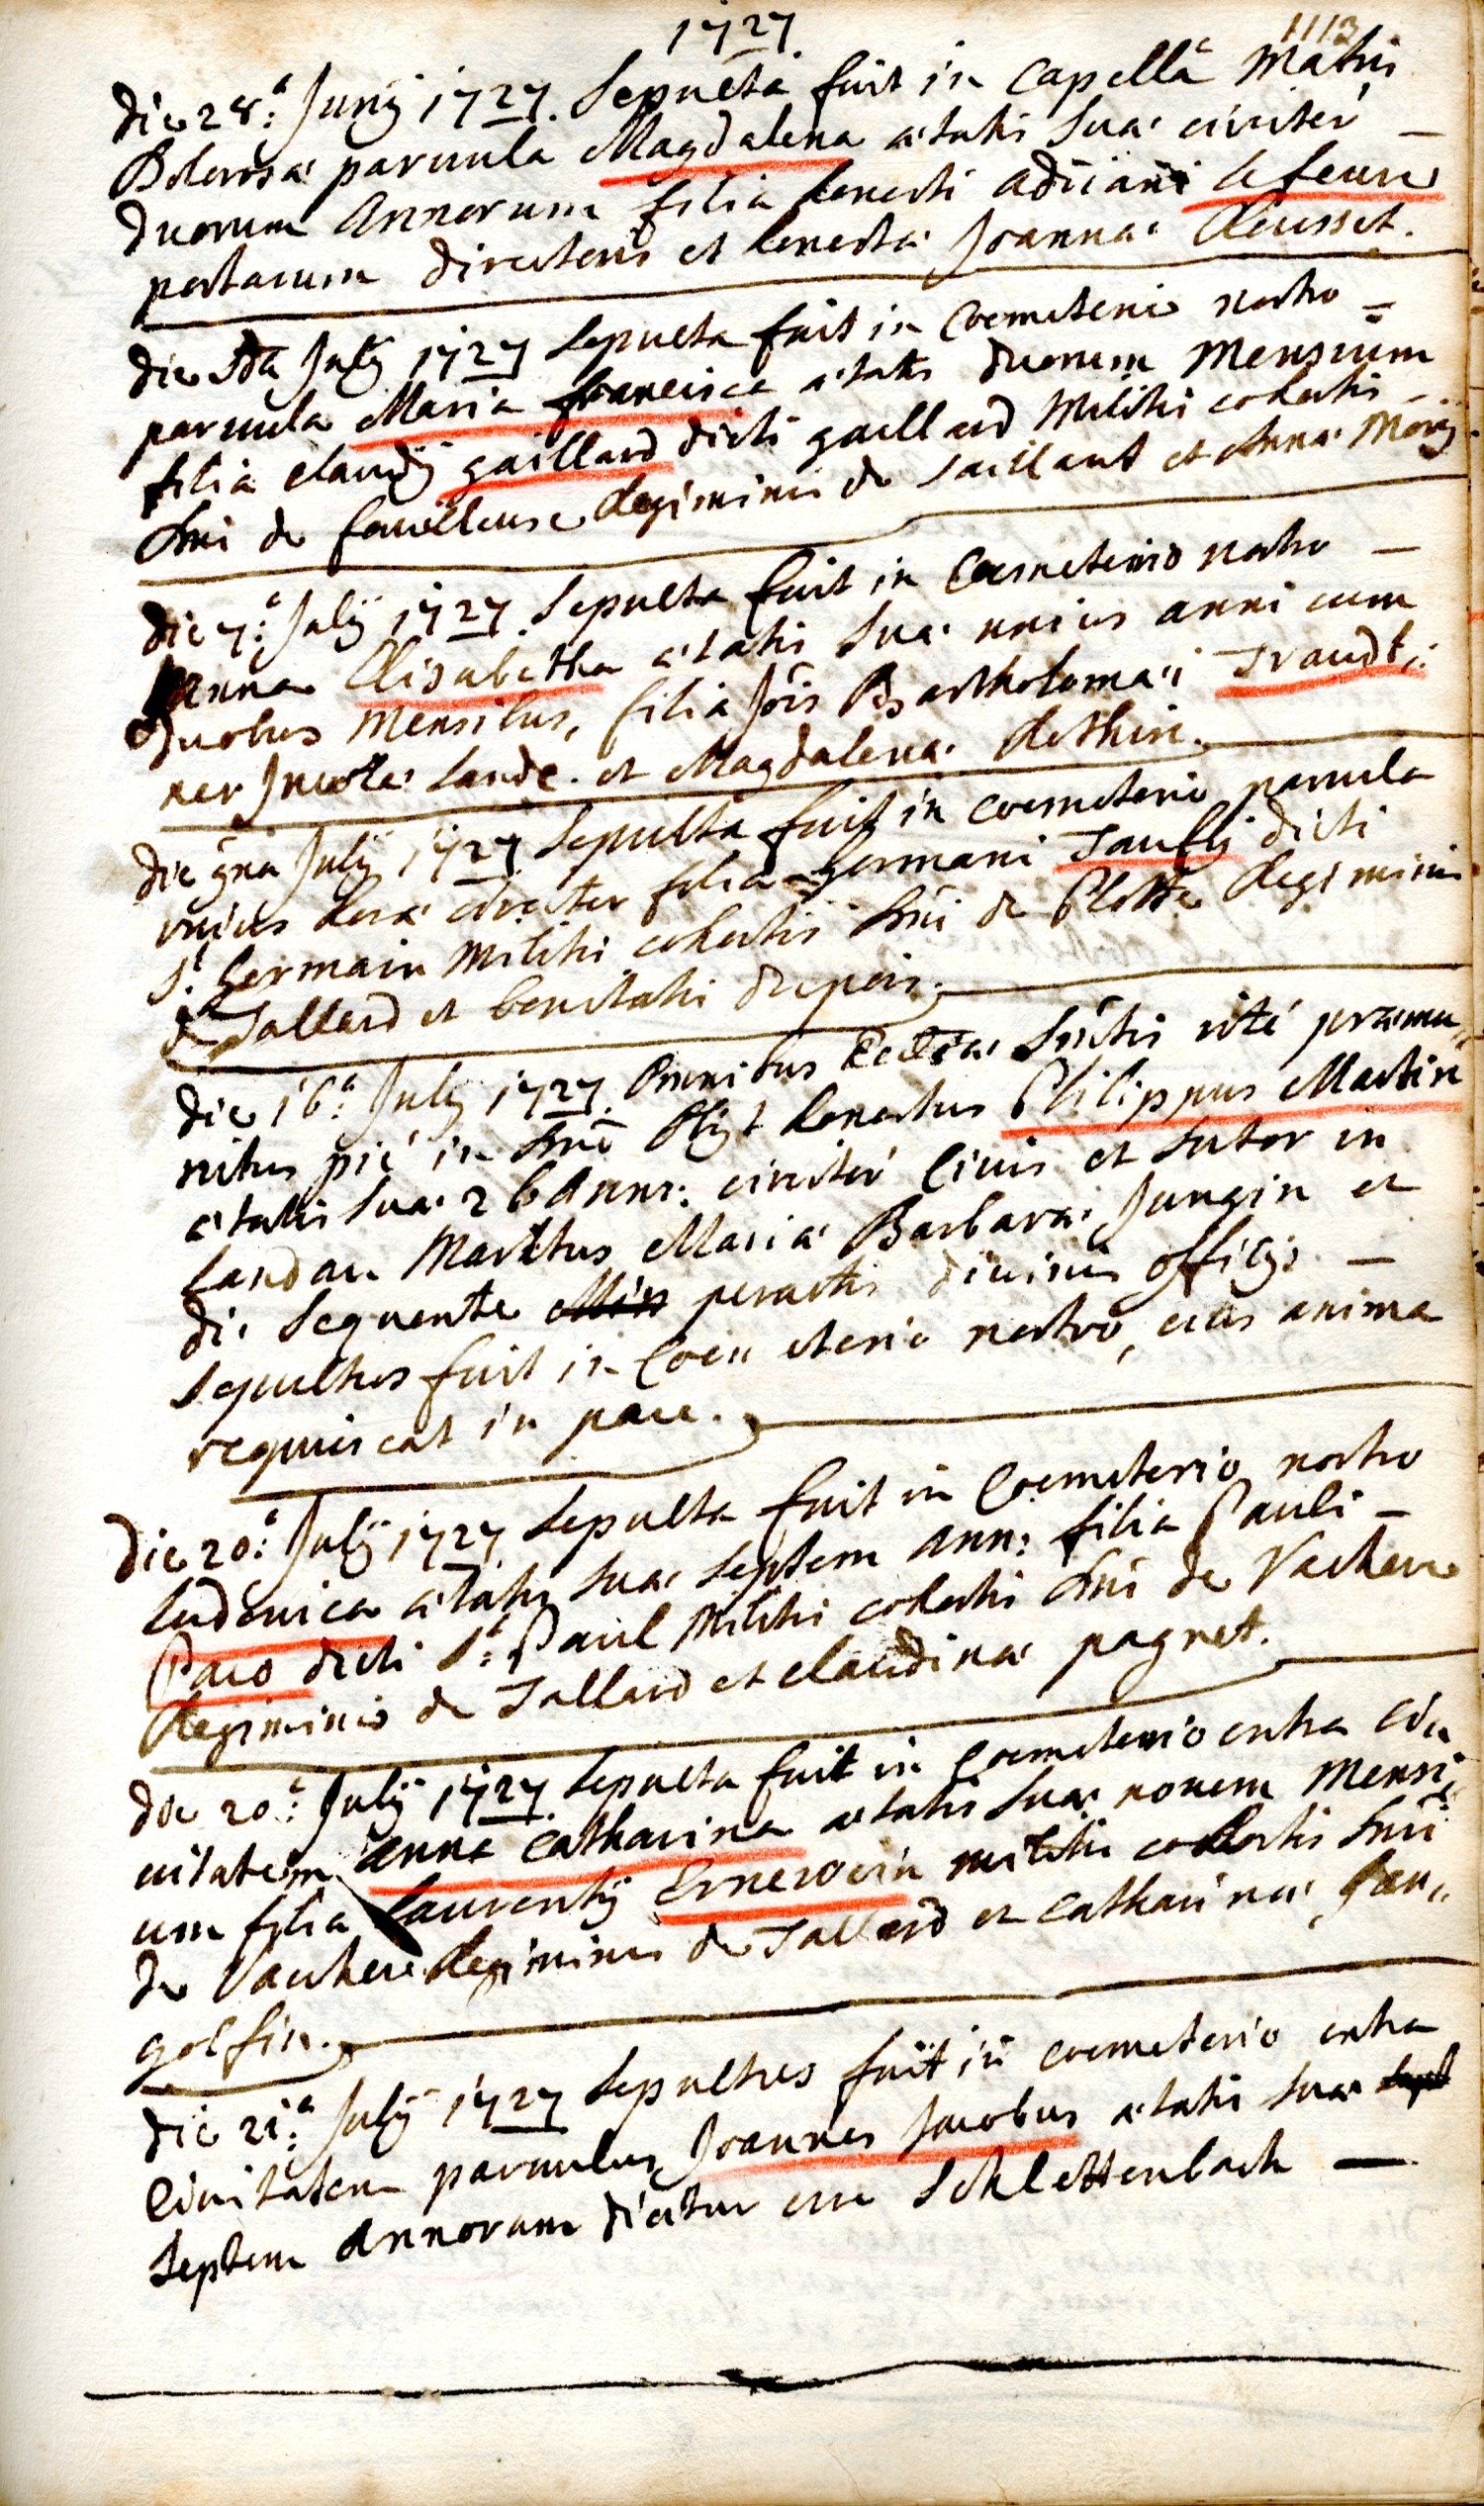 1727.
1113
die 28.a Junij 1727. Sepulta fuit in Capellâ Matris
Dolorosæ parvula Magdalena ætatis suæ circiter
duorum Annorum filia honesti Adriani lefeure
portarum directoris et honestæ Joannæ
die 5ta Julij 1727 Sepulta fuit in Coemeterio nostro
parvula Maria francisca ætatis duorum Mensium
filia claudij gaillard dicti gaillard Militis cohortis
Dni de Regiminis de et Annæ
die 7.a Julij 1727. Sepulta fuit in Coemeterio nostro
Anna Elisabetha ætatis suæ unius anni cum
duobus Mensibus, filia Jois Bartholomæi Trandt,,
ner Incolæ Land. et Magdalenæ Rethin.
die 9na Julij 1727. Sepulta fuit in coemeterio parvula
unius horæ circiter filia germani dicti
St. Germain Militis cohortis Dni de Regiminis
de Tallard et
die 16.a Julij 1727. Omnibus Ecclæ Snctis rité præmu,,
nitus pié in Dno Obijt honestus Philippus Martin
ætatis suæ 26 Annr: circiter Civis et Sutor in
Landau Maritus Mariæ Barbaræ Jungin et
die sequente peractis divinis officijs
sepultus fuit in Coemeterio nostro, cuius anima
requiescat in pace.
die 20.a Julij 1727 Sepulta fuit in Coemeterio nostro
Ludovica ætatis suæ septem ann: filia Pauli
Paco dicti St. Paul Militis cohortis Dni de Vachere
Regiminis de Tallard et claudinæ pagnet.
die 20.a Julij 1727. Sepulta fuit in Coemeterio extra ci,,
vitatem Anna Catharina ætatis suæ novem Mensi,,
um filia Laurentij militis cohortis Dni
de Vachere Regiminis de Tallard et Catharinæ gan,,
golfin.
die 21.a Julij 1727 Sepultus fuit in coemeterio extra
Civitatem parvulus Joannes Jacobus ætatis suæ
septem Annorum dicitur esse Schlettenbach